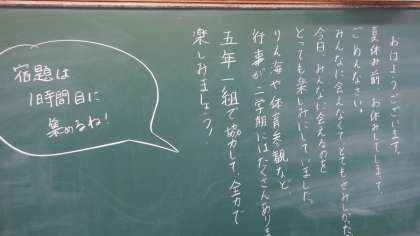 おはようございます。
夏休み前、お休みしてしまって、
ごめんなさい。
みんなに会えなくてとてもさみしかった
今日、みんなに会えるのを
とっても楽しみにしていました。
りん海や体育参観など
行事が二学期にはたくさんありま
五年一組で協力して、全力で
楽しみましょう!
宿題は
1時間目に
集めるね!